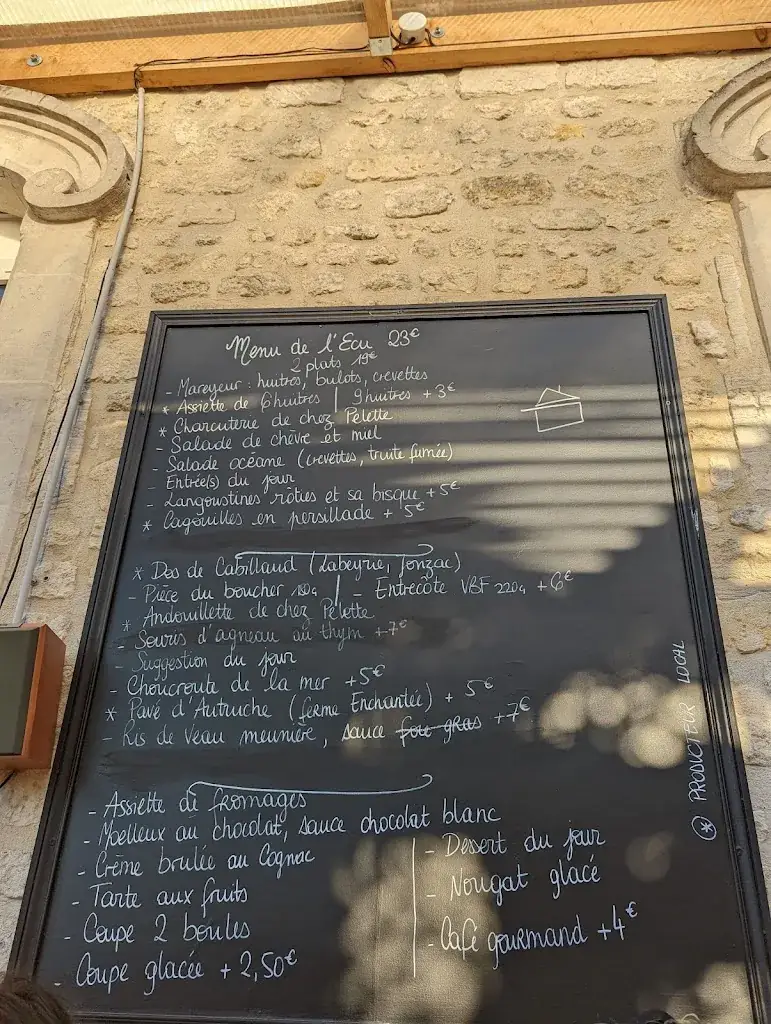 Menu de l'Ecu 23€
2 plats 19€
- Mareyeur : huîtres, bulots, crevettes
* Assiette de 6 huîtres | 9 huîtres + 3€
* Charcuterie de chez Pelette
- Salade de chèvre et miel
- Salade océane (crevettes, truite fumée)
- Entrée(s) du jour
- Langoustines rôties et sa bisque + 5€
* Cagouilles en persillade + 5€
* Dos de Cabillaud (Labeyrie, Jonzac)
- Pièce du boucher 180g | - Entrecôte VBF 220g + 6€
* Andouillette de chez Pelette
- Souris d'agneau au thym + 7€
- Suggestion du jour
- Choucroute de la mer + 5€
* Pavé d'Autruche (ferme Enchantée) + 5€
- Ris de veau meunière, sauce foie gras + 7€
- Assiette de fromages
- Moelleux au chocolat, sauce chocolat blanc
- Crème brulée au Cognac
- Tarte aux fruits
- Coupe 2 boules
- Coupe glacée + 2,50€
- Dessert du jour
- Nougat glacé
- Café gourmand + 4€
(*) PRODUCTEUR LOCAL